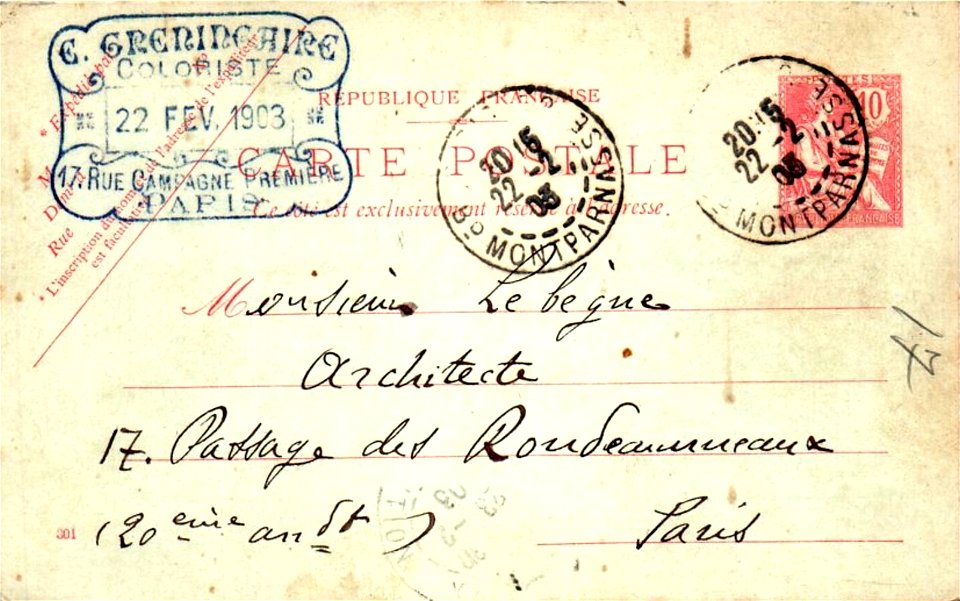 E. GRENINGAIRE
COLORISTE
22 FEV. 1903
17, RUE CAMPAGNE PREMIÈRE
PARIS
* Expédié par
M
Demt
Rue
* L'inscription du nom et de l'adresse de l'expéditeur
est facultative
RÉPUBLIQUE FRANÇAISE
CARTE POSTALE
Ce côté est exclusivement réservé à l'adresse.
20 15
22 -2
03
Bd MONTPARNASSE
20 15
22 -2
03
MONTPARNASSE
POSTES
10
FRANÇAISE
Monsieur Lebègue
Architecte
17. Passage des Rondeaunneaux
(20eme ardt)
Paris
301